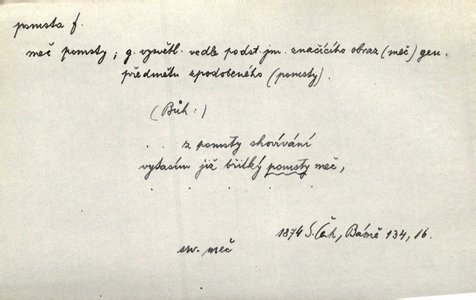 pomsta f.
meč pomsty; g. vysvětl. vedle podst. jm. značícího obraz (meč) gen.
předmětu zpodobeného (pomsty).
(Bůh:)
. . z pomsty shovívání
vytasím již břitký pomsty meč,
. . . . . .
1874 S. Čech, Básně 134, 16.
srv. meč